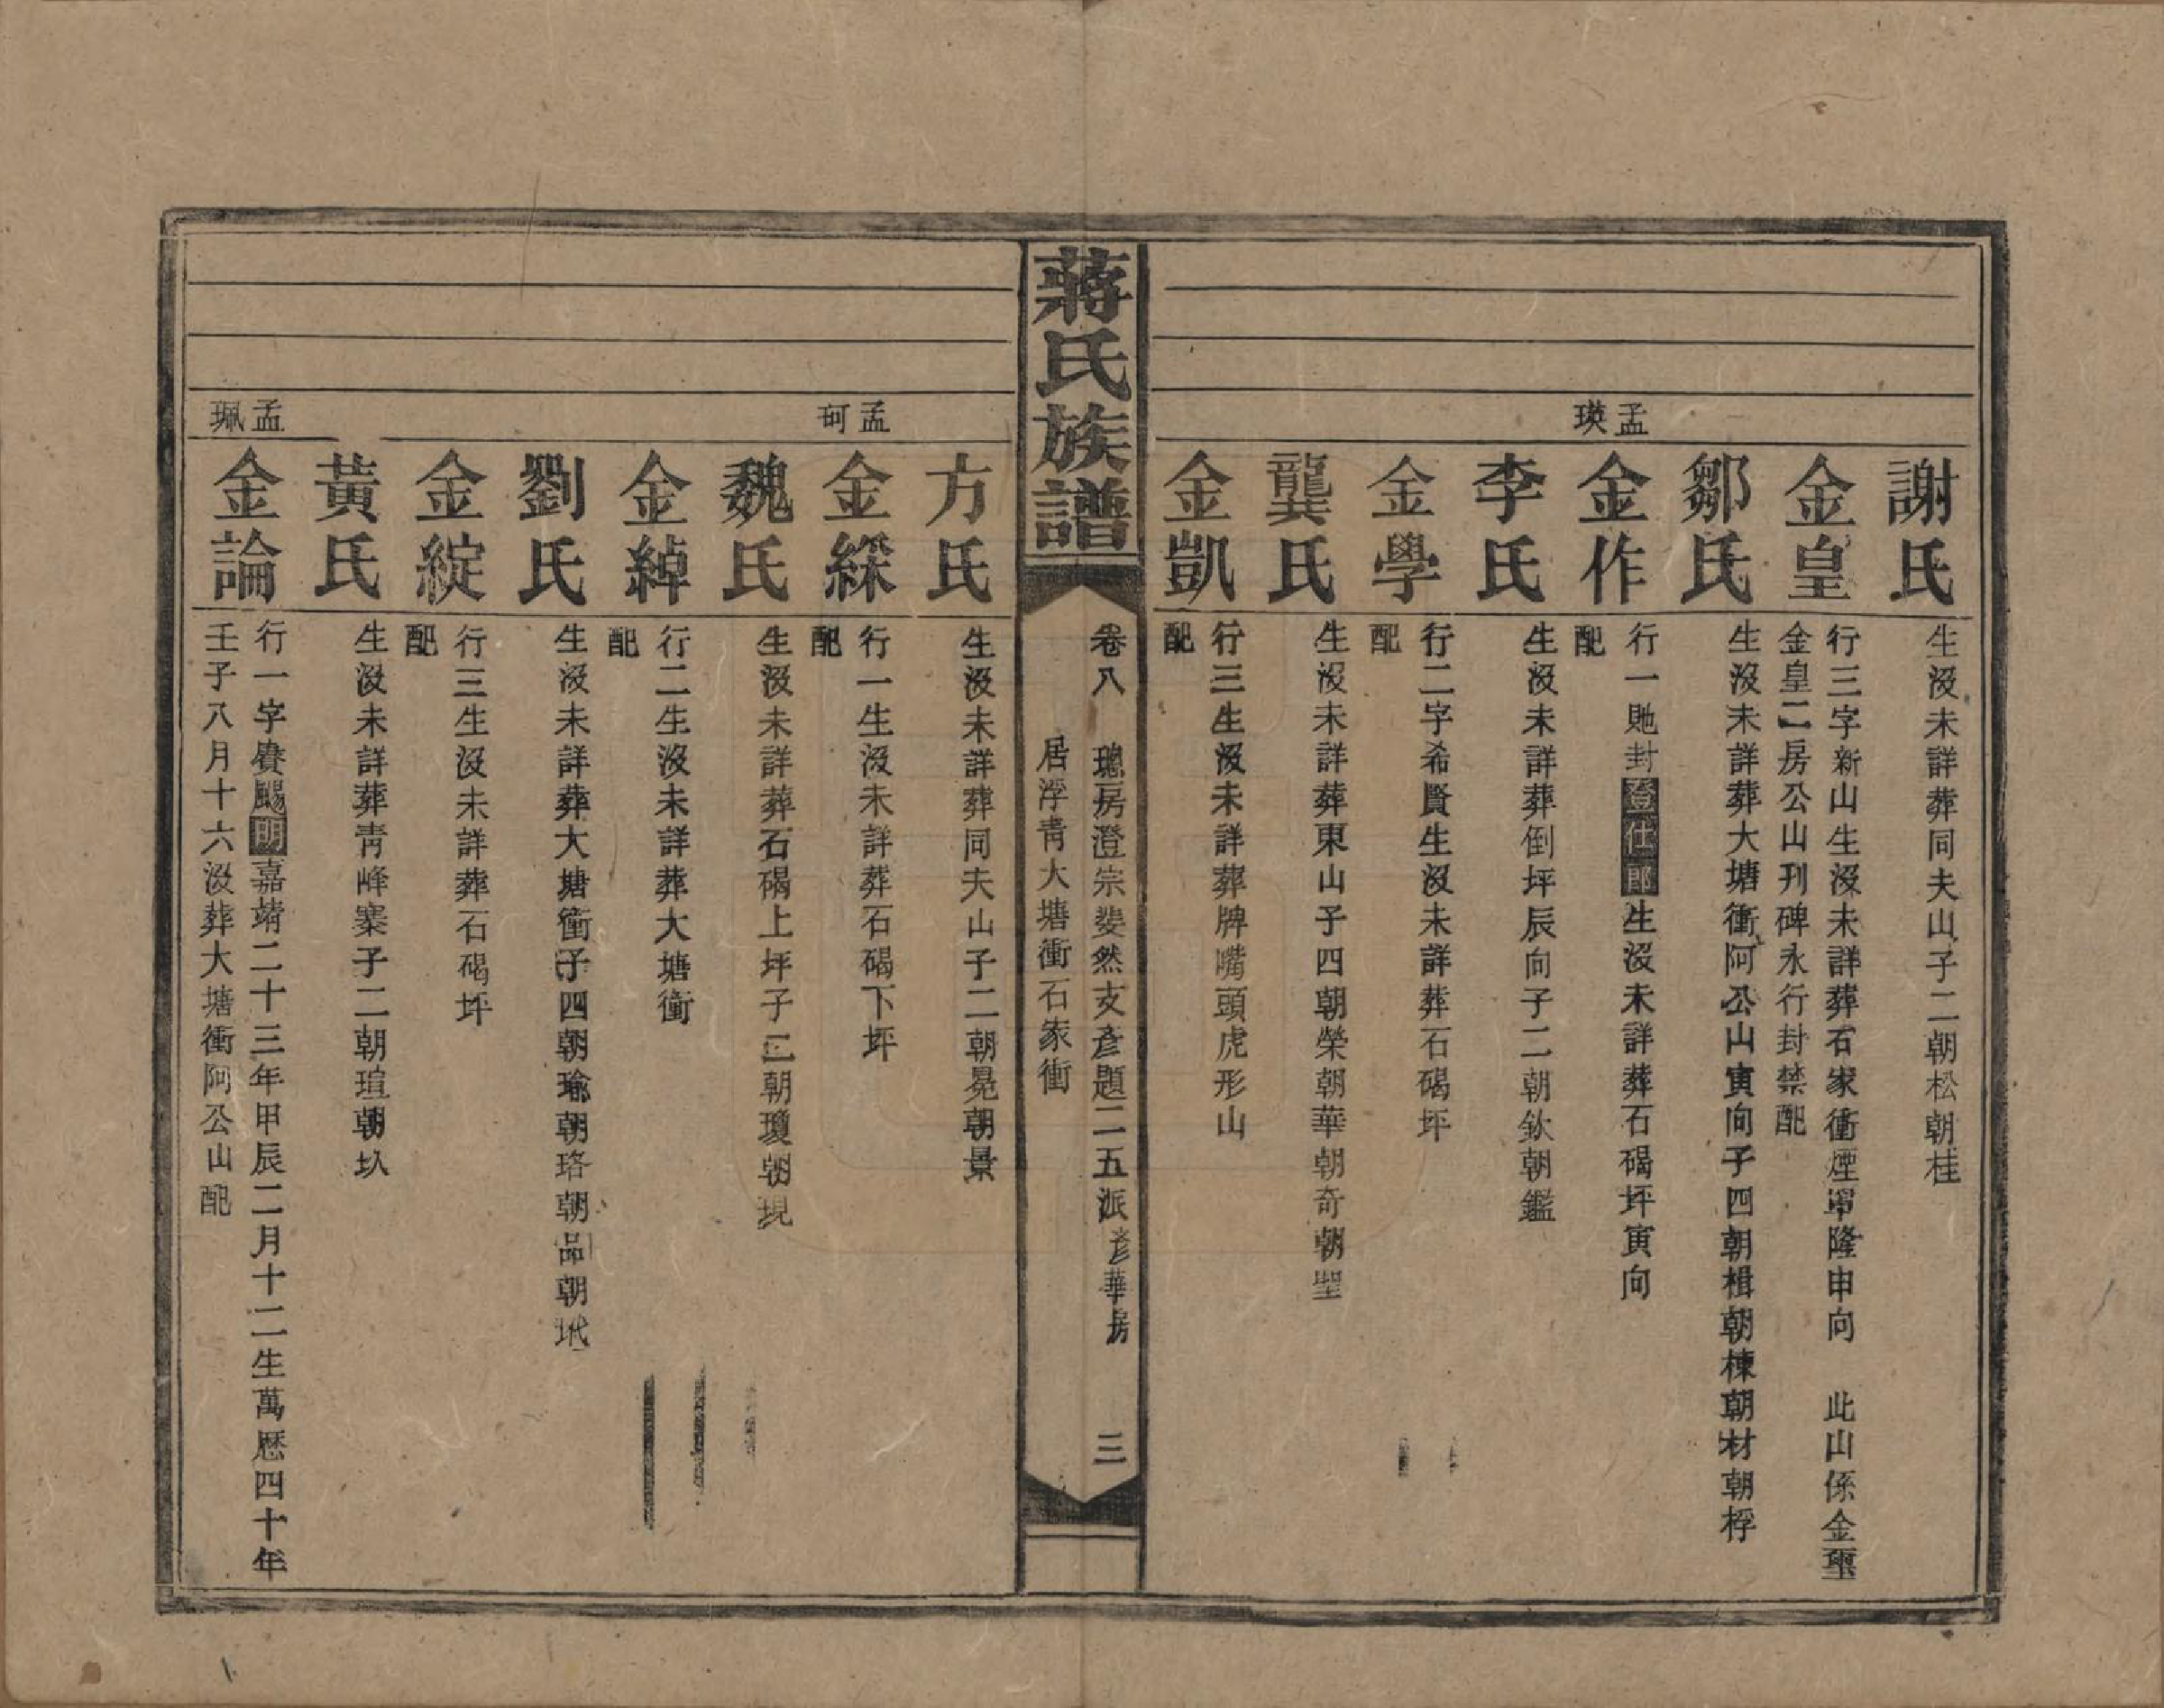 謝氏
生沒未詳葬同夫山子二朝松朝桂
金皇
行三字新山生沒未詳葬石家衝煙罩隆申向　此山係金璽
金皇二房公山刋碑永行封禁配
鄒氏
生沒未詳葬大塘衝阿公山寅向子四朝楫朝棟朝材朝桴
孟瑛
金作
行一貤封登仕郎生沒未詳葬石碣坪寅向
配
李氏
生沒未詳葬倒坪辰向子二朝欽朝鑑
金學
行二字希賢生沒未詳葬石碣坪
配
龔氏
生沒未詳葬東山子四朝榮朝華朝奇朝聖
金凱
行三生沒未詳葬牌嘴頭虎形山
配
蔣氏族譜
卷八　璁房澄宗斐然支彥題二五派彥華房　三
居浮青大塘衝石家衝
方氏
生沒未詳葬同夫山子二朝晃朝景
孟珂
金綵
行一生沒未詳葬石碣下坪
配
魏氏
生沒未詳葬石碣上坪子二朝瓊朝現
金綽
行二生沒未詳葬大塘衝
配
劉氏
生沒未詳葬大塘衝子四朝瑜朝珞朝品朝玳
金綻
行三生沒未詳葬石碣坪
配
黃氏
生沒未詳葬靑峰寨子二朝瑄朝玖
孟珮
金論
行一字賡颺明嘉靖二十三年甲辰二月十二生萬歷四十年
壬子八月十六沒葬大塘衝阿公山配